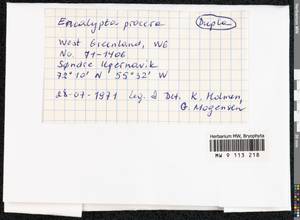 Encalypta procera Dupla
West Greenland, W6
No. 71-1406
Søndre Upernavik
72°10' N 55°32' W
28-07-1971 Leg. & Det. K. Holmen,
G. Mogensen
Herbarium MW, Bryophyta
MW 9 113 218